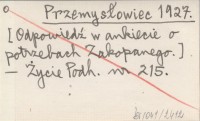 Przemysłowiec 1927.
[Odpowiedź w ankiecie o
potrzebach Zakopanego.]
– Życie Podh. nr 215.